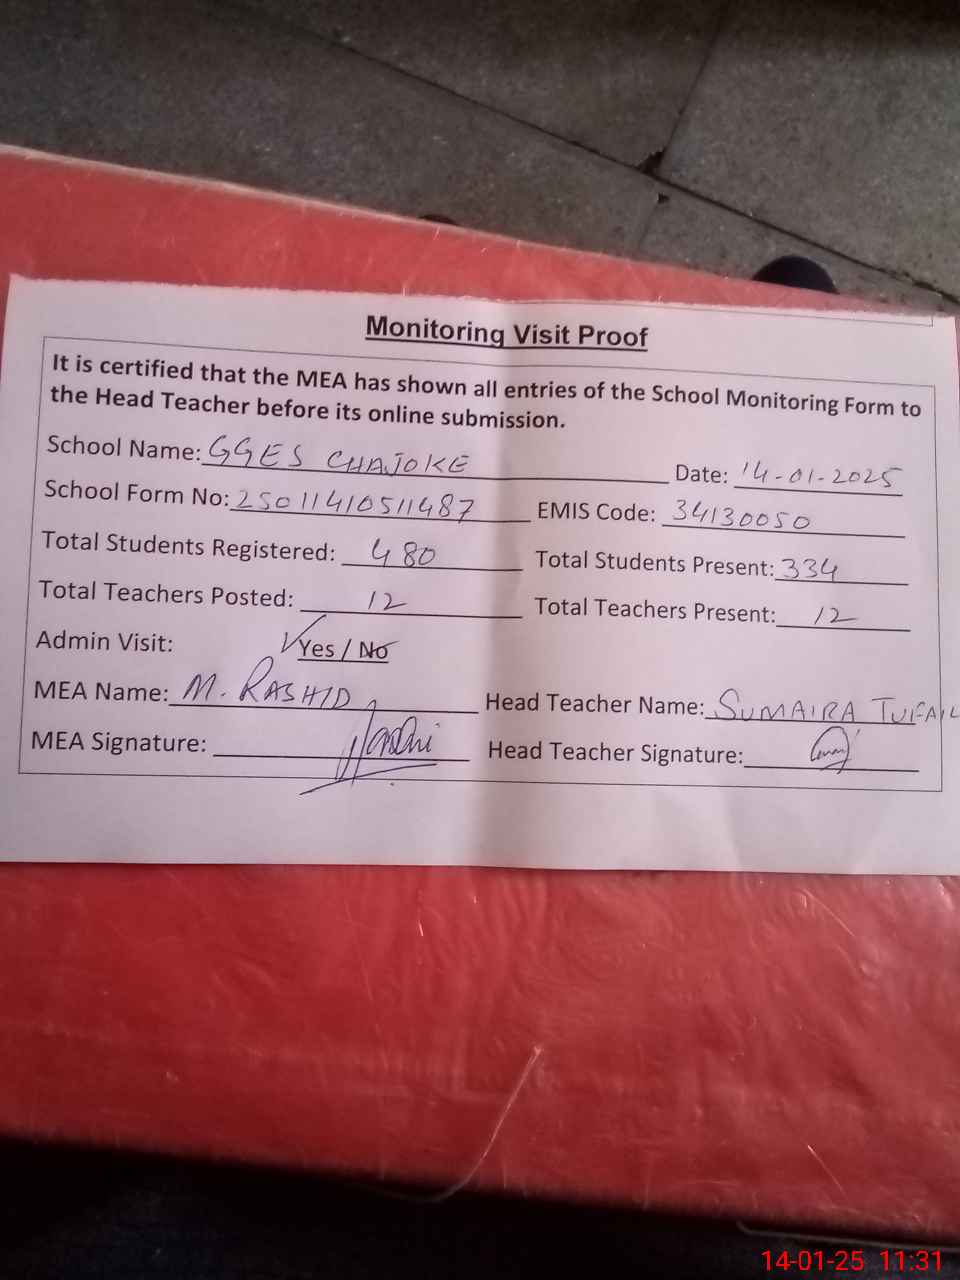 Monitoring Visit Proof
It is certified that the MEA has shown all entries of the School Monitoring Form to
the Head Teacher before its online submission.
School Name: GGES CHAJOKE Date: 14-01-2025
School Form No: 25011410511487 EMIS Code: 34130050
Total Students Registered: 480 Total Students Present: 334
Total Teachers Posted: 12 Total Teachers Present: 12
Admin Visit: ✓Yes / No
MEA Name: M. RASHID Head Teacher Name: SUMAIRA TUFAIL
MEA Signature: Head Teacher Signature:
14-01-25 11:31